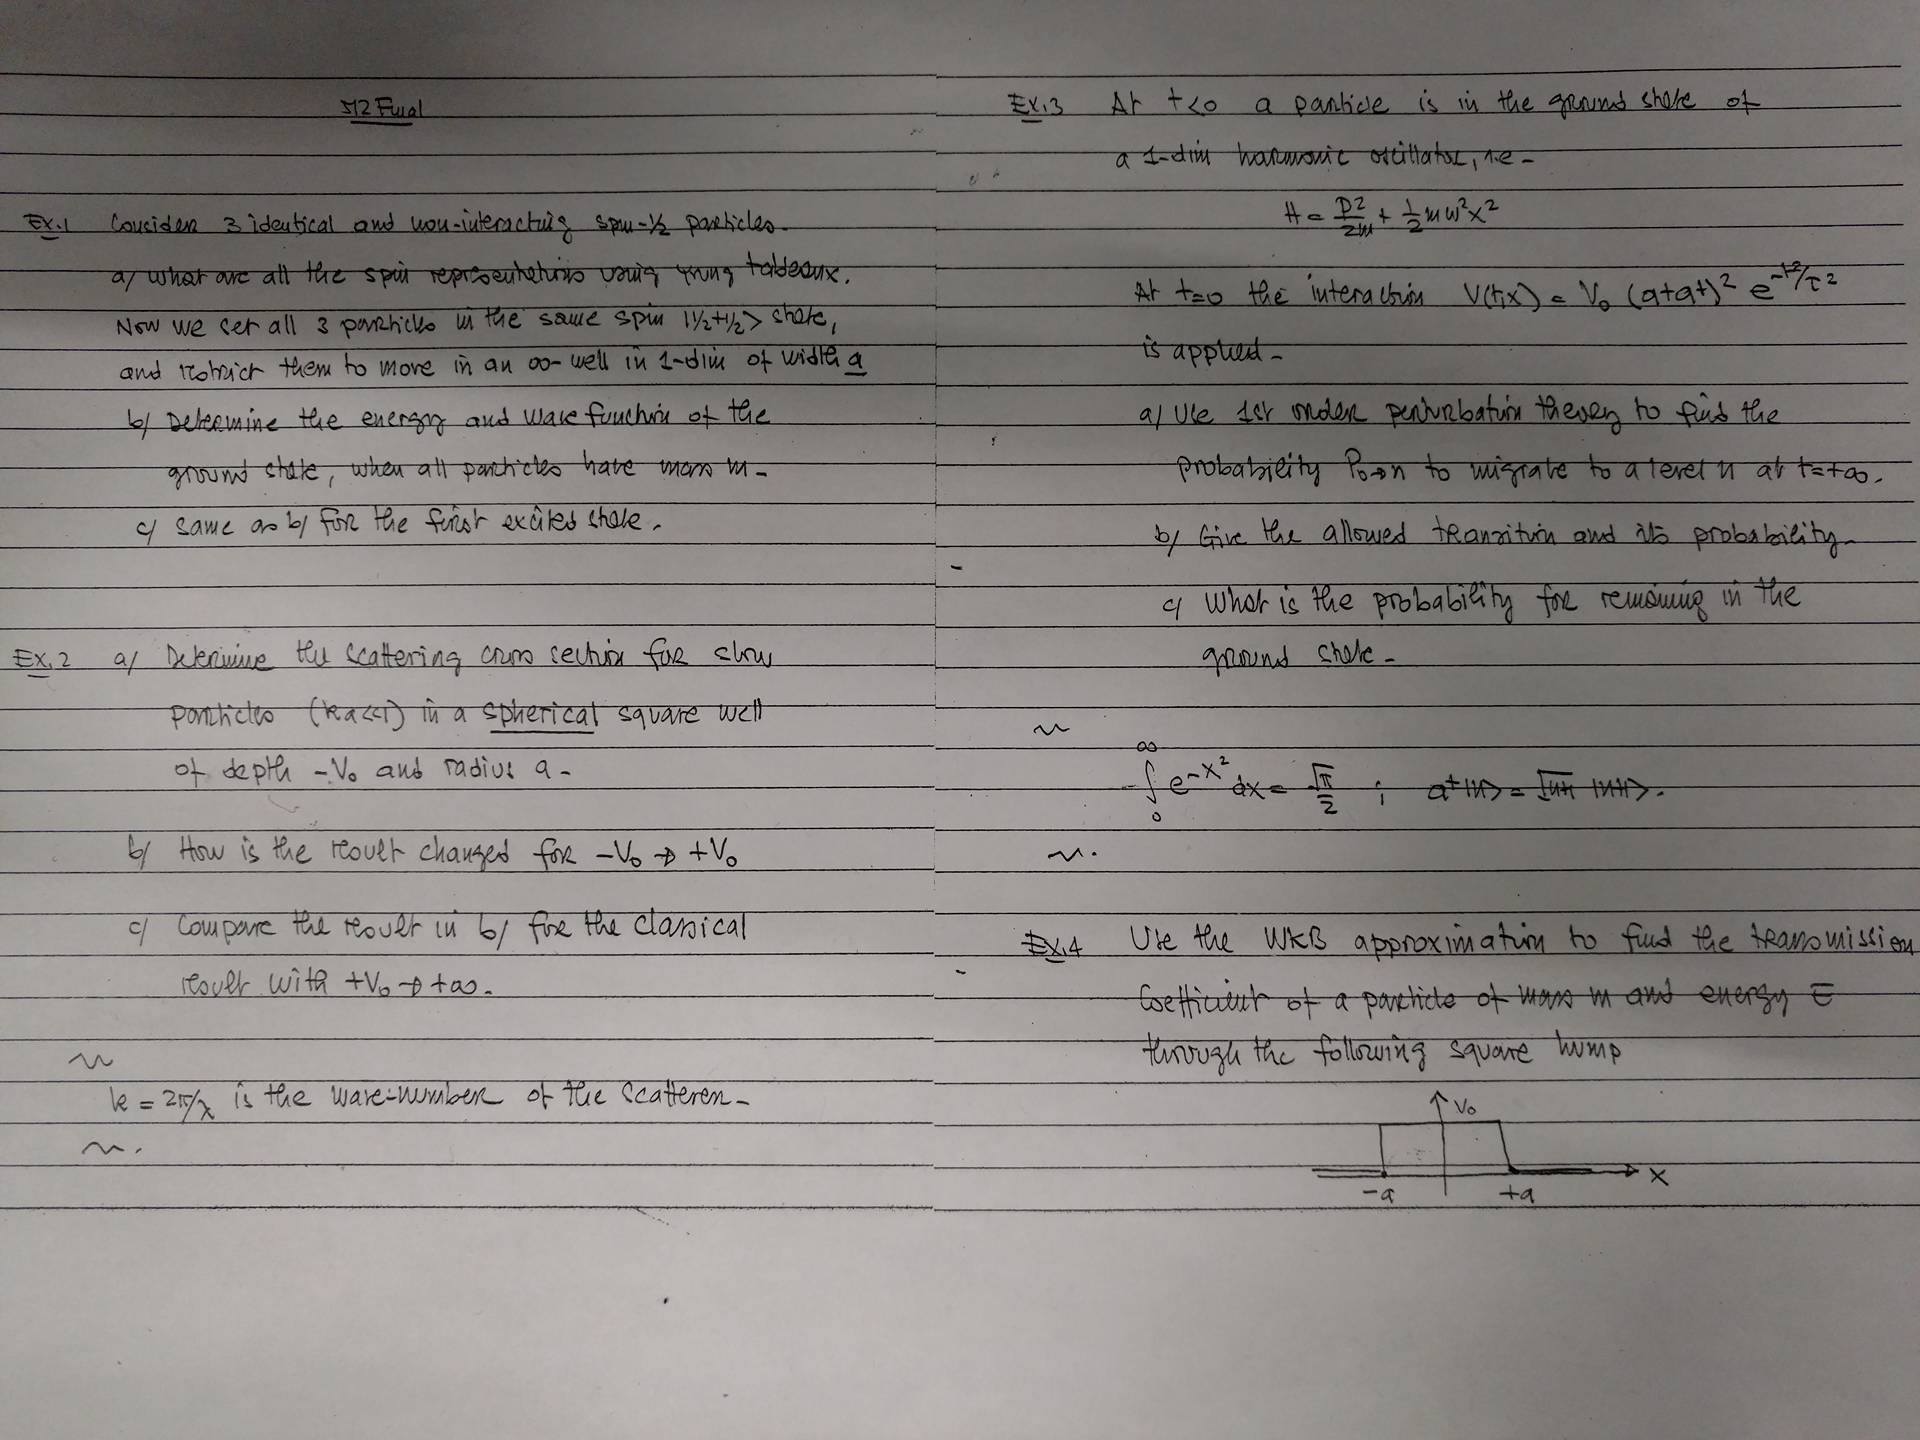 512 Final
Ex.1 Consider 3 identical and non-interacting spin-1/2 particles.
a/ What are all the spin representations using Young tableaux.
Now we set all 3 particles in the same spin |1/2+1/2> state,
and restrict them to move in an ∞-well in 1-dim of width a
b/ Determine the energy and wave function of the
ground state, when all particles have mass m.
c/ Same as b/ for the first excited state.
Ex.2 a/ Determine the scattering cross section for slow
particles (ka<<1) in a spherical square well
of depth -V₀ and radius a.
b/ How is the result changed for -V₀ → +V₀
c/ Compare the result in b/ for the classical
result with +V₀ → +∞.
~
k = 2π/λ is the wave-number of the scatterer.
~.
Ex.3 At t<0 a particle is in the ground state of
a 1-dim harmonic oscillator, i.e.
H = P²/2m + 1/2 mω²x²
At t=0 the interaction V(t,x) = V₀ (a+a†)² e^{-t²/τ²}
is applied.
a/ Use 1st order perturbation theory to find the
probability P₀→n to migrate to a level n at t=+∞.
b/ Give the allowed transition and its probability.
c/ What is the probability for remaining in the
ground state.
~
∫₀^∞ e^{-x²} dx = √π/2 ; a†|n> = √n+1 |n+1>.
~.
Ex.4 Use the WKB approximation to find the transmission
Coefficient of a particle of mass m and energy E
through the following square hump
V₀
x
-a +a